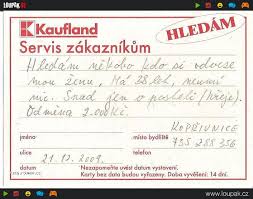 LOUPAK.CZ
Kaufland
HLEDÁM
Servis zákazníkům
Hledám někoho kdo si odvese
mou ženu, Má 28 let, neumí
nic. Snad jen v posteli (hřeje).
Odměna 2.000 Kč.
KOPŘIVNICE
jméno místo bydliště 735 288 356
ulice telefon
datum 21.12.2009. Nezapomeňte uvést datum vystavení.
Karty bez data budou vyřazeny. Doba vyvěšení: 14 dní.
www.loupak.cz